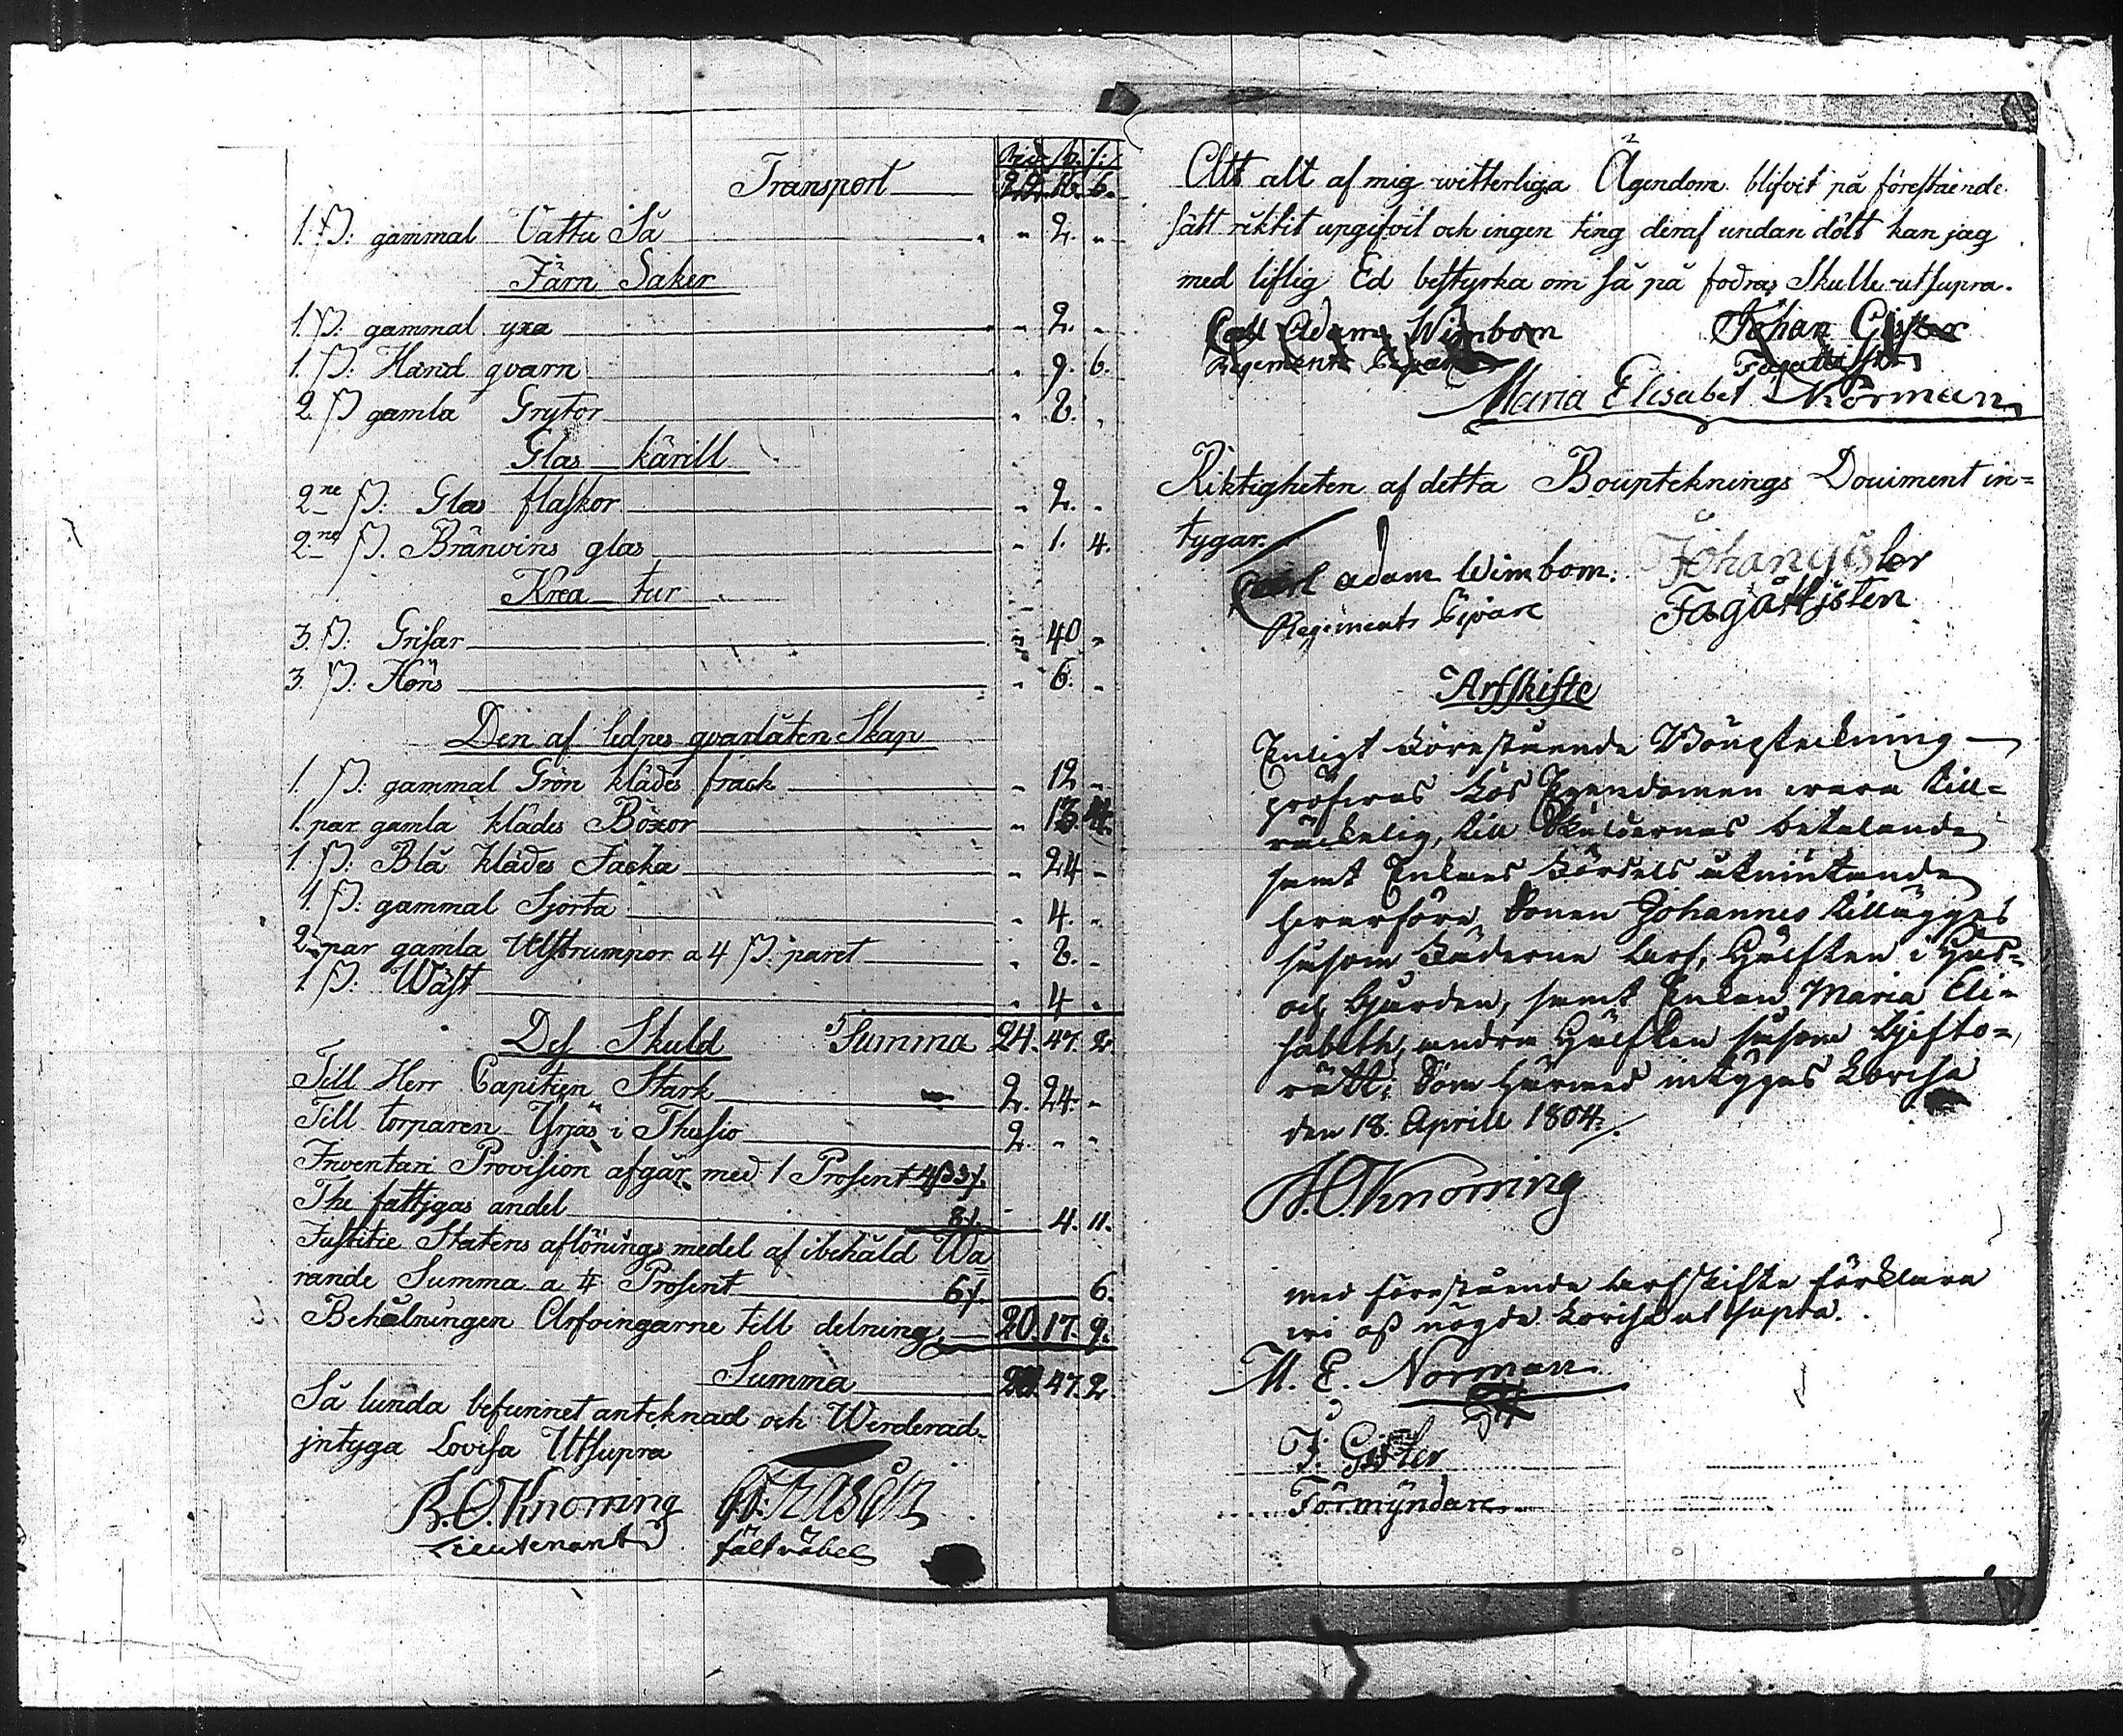 Transport 22. 16. 6.
1. st: gammal Vattu Så " 2. "
Järn Saker
1. st: gammal yxa " 2. "
1. st: Hand qvarn " 9. 6.
2. st gamla Grytor " 8. "
Glas kärill
2ne st: Glas flaskor " 2. "
2ne st. Bränvins glas " 1. 4.
Krea tur
3. st: Grisar " 40 "
3. st: Höns " 6. "
Den af lednes qvarlåten Skap
1. st: gammal Grön klädes frack " 12 "
1. par gamla klädes Böxor " 13. 4.
1. st: Blå klädes Jacka " 24 "
1. st: gammal Sjorta " 4. "
2. par gamla Ullstrumpor a 4 st: paret " 8. "
1. st: Wäst " 4 "
Des Skuld Summa 24. 47. 2.
Till Herr Capitien Stark 2. 24. "
Till torparen Yrjas i Thessio 2. " "
Inventari Provision afgår med 1 Prosent
The fattigas andel 8/. 4. 11.
Justitie Statens aflönings medel af ibehåld Wa
rande Summa a Prosent 6/. 6.
Behålningen Arfvingarne till delning 20. 17. 9.
Summa 47. 2.
Så lunda befunnet anteknad och Werderad
jntyga Lovisa Utsupra
B. O. Knorring
Lieutenant
fältväbel
Att alt af mig witterliga Ägendom blifvit på föreståénde
sätt riktit upgifvit och ingen ting deraf undan dölt kan jag
med liflig Ed bestyrka om så på fodras Skulle utsupra.
Carl Adam Wimbom Johan Gisler
Regements
Maria Elisabet Norman
Riktigheten af detta Boupteknings Douiment in=
tygar.
Carl adam Wimbom. Johan gisler
Regiments Fagåttjsten
Arfskifte
Enligt Förestående Boupteckning
pröfvas Lös Egendomen wara till=
räckelig, till Skuldernas betalande
samt Enkans Fördels utniutande
hvarföre Sonen Johannes tillägges
såsom Fäderne Arf, Hälften i Hus=
och Gården, samt Enkan Maria Eli=
sabeth, andra Hälften såsom Gifto=
rätt; Som härmed intygas Lovisa
den 18. Aprill 1804.
B. O. Knorring
med förestående Arfskifte förklara
wi oss nögde Lovisa ut supra.
M. E. Norman
J. Gisler
Förmyndare